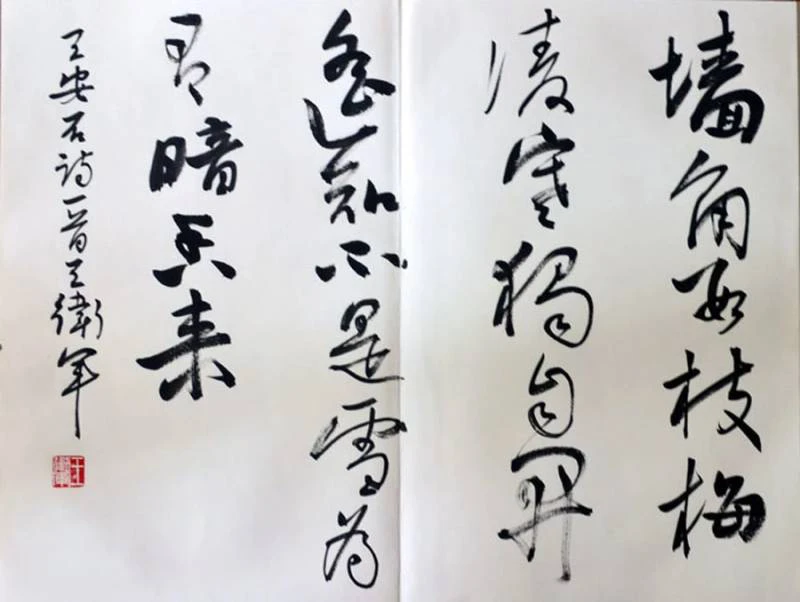 墙角数枝梅
凌寒獨自開
遥知不是雪为
有暗香来
王安石诗一首王衛军